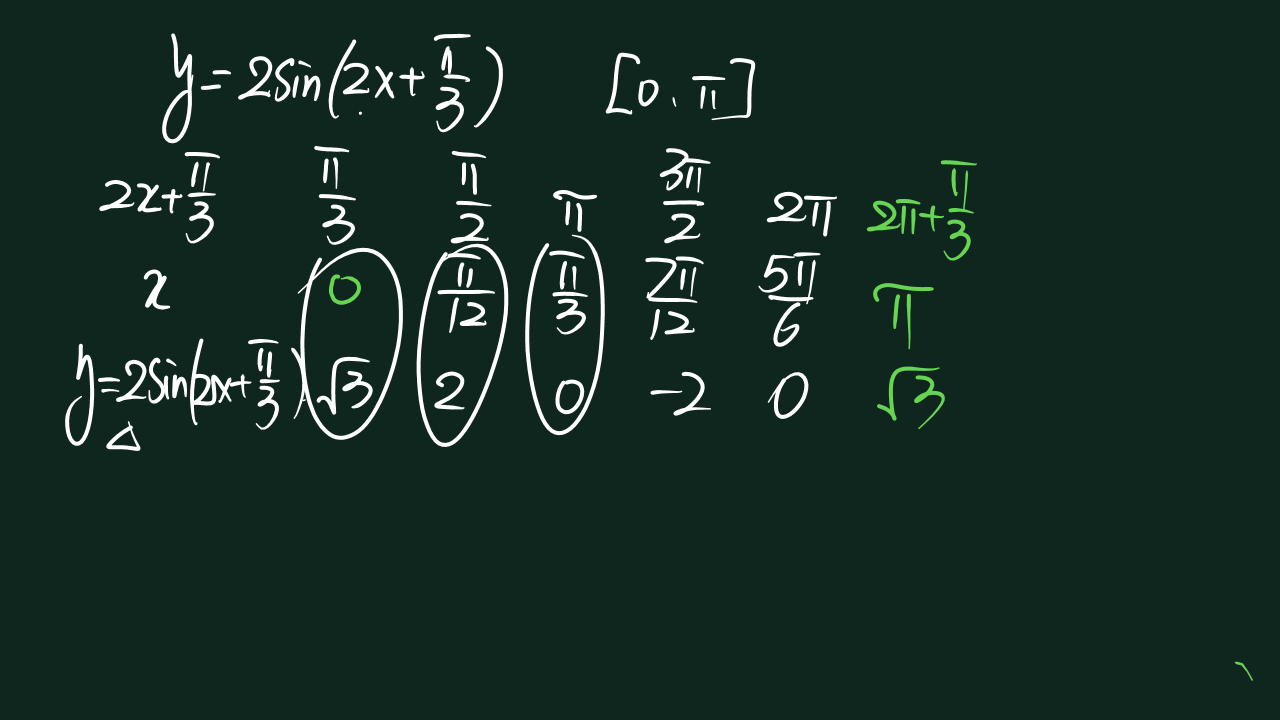 y=2sin(2x+π/3) [0,π]
2x+π/3 π/3 π/2 π 3π/2 2π 2π+π/3
x 0 π/12 π/3 7π/12 5π/6 π
y=2sin(2x+π/3) √3 2 0 -2 0 √3